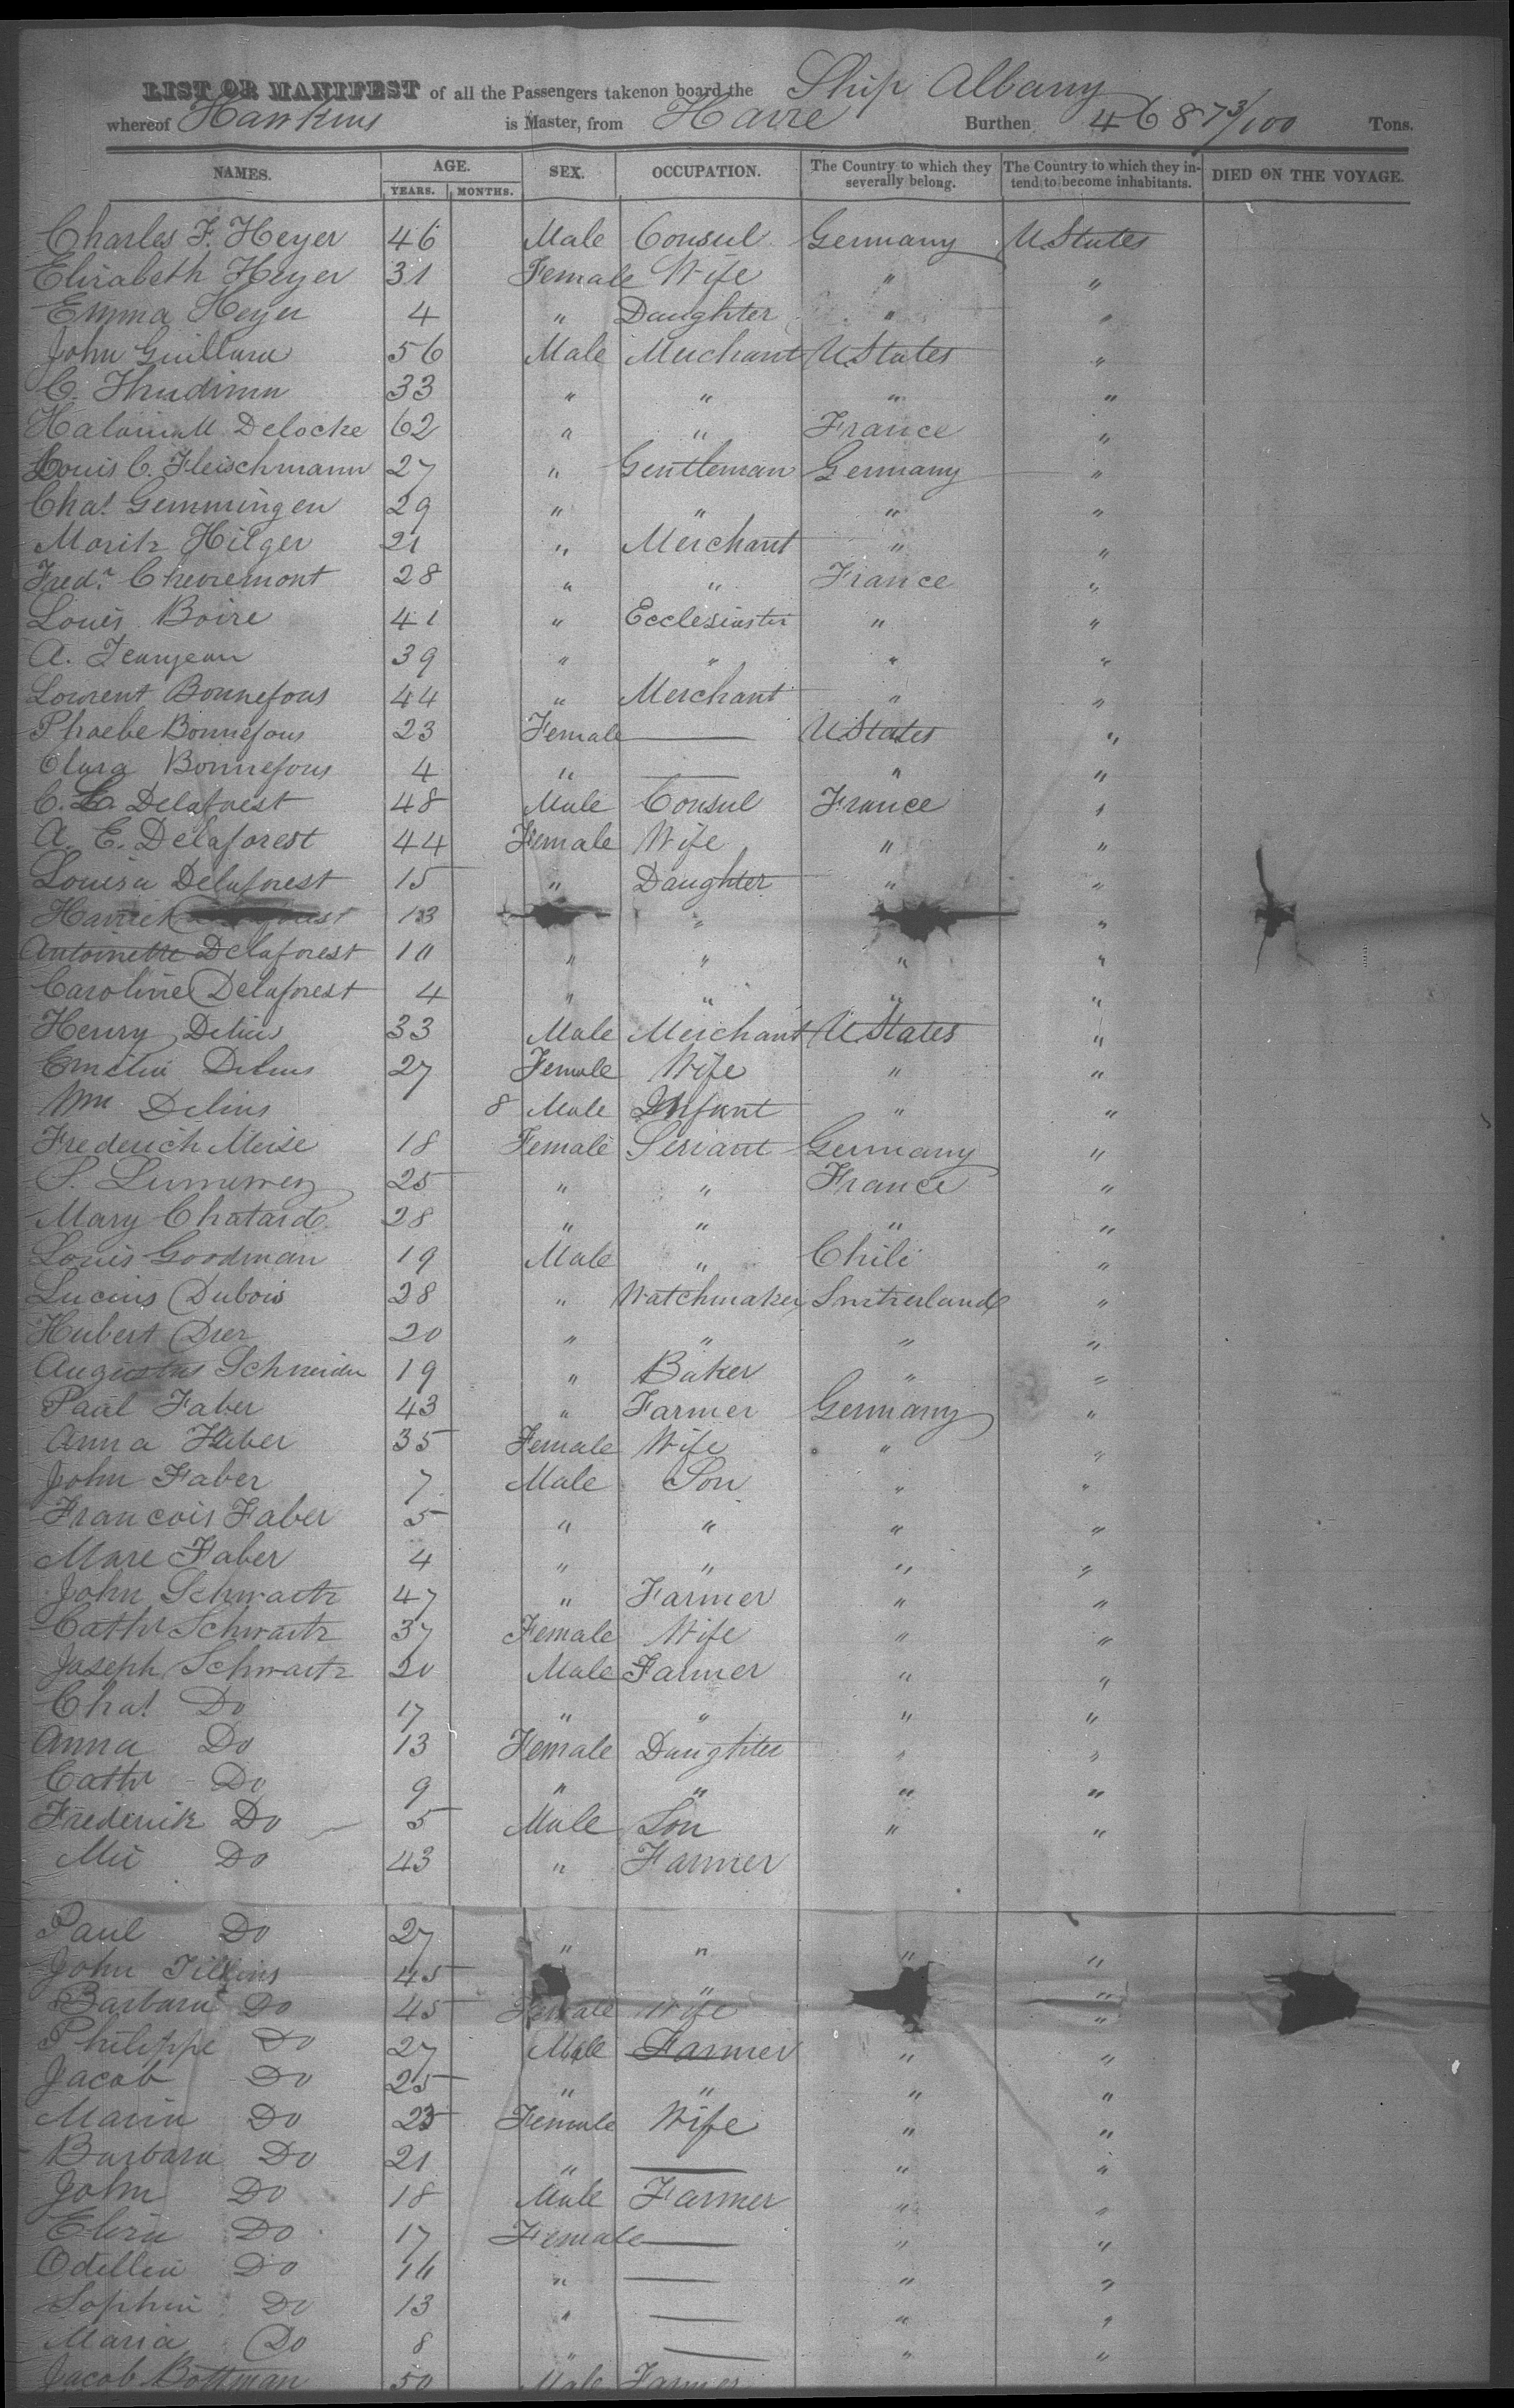 LIST OR MANIFEST of all the Passengers takenon board the Ship Albany
whereof Hawkins is Master, from Havre Burthen 468 73/100 Tons.
NAMES. AGE. YEARS. MONTHS. SEX. OCCUPATION. The Country to which they severally belong. The Country to which they intend to become inhabitants. DIED ON THE VOYAGE.
Charles F. Heyer 46 Male Consul Germany U States
Elizabeth Heyer 31 Female Wife " "
Emma Heyer 4 " Daughter " "
John Guillaru 56 Male Merchant U States "
C. 33 " " " "
Delocke 62 " " France "
Louis C. Fleischmann 27 " Gentleman Germany "
Chas. Gemmingen 29 " " " "
Moritz Hilger 21 " Merchant " "
Fredr. Chevremont 28 " " France "
Louis Boire 41 " Ecclesiaster " "
A. Jeanjean 39 " " " "
Laurent Bonnefous 44 " Merchant " "
Phoebe Bonnefous 23 Female — U States "
Clara Bonnefous 4 " — " "
C. L. Delaforest 48 Male Consul France "
A. E. Delaforest 44 Female Wife " "
Louisa Delaforest 15 " Daughter " "
Harriet 13 " "
Antoinette Delaforest 10 " " " "
Caroline Delaforest 4 " " " "
Henry Delius 33 Male Merchant U States "
Emilia Delius 27 Female Wife " "
Wm Delius 8 Male Infant " "
Frederich Meise 18 Female Servant Germany "
S. 25 " " France "
Mary Chatard 28 " " " "
Louis Goodman 19 Male " Chili "
Lucius Dubois 28 " Watchmaker Switzerland "
Hubert Drez 20 " " " "
Augustus Schneider 19 " Baker " "
Paul Faber 43 " Farmer Germany "
Anna Faber 35 Female Wife " "
John Faber 7 Male Son " "
Francois Faber 5 " " " "
Marc Faber 4 " " " "
John Schwartz 47 " Farmer " "
Cathr Schwartz 37 Female Wife " "
Joseph Schwartz 20 Male Farmer " "
Chas. Do 17 " " " "
Anna Do 13 Female Daughter " "
Cathr Do 9 " " " "
Frederick Do 5 Male Son " "
Mic Do 43 " Farmer
Paul Do 27 " " " "
John 45 " "
Barbara Do 45 Female Wife "
Philippe Do 27 Male Farmer " "
Jacob Do 25 " " " "
Maria Do 23 Female Wife " "
Barbara Do 21 " — " "
John Do 18 Male Farmer " "
Eliza Do 17 Female — " "
Odellia Do 16 " — " "
Sophia Do 13 " — " "
Maria Do 8 " — " "
Jacob Bottman 50 Male Farmer